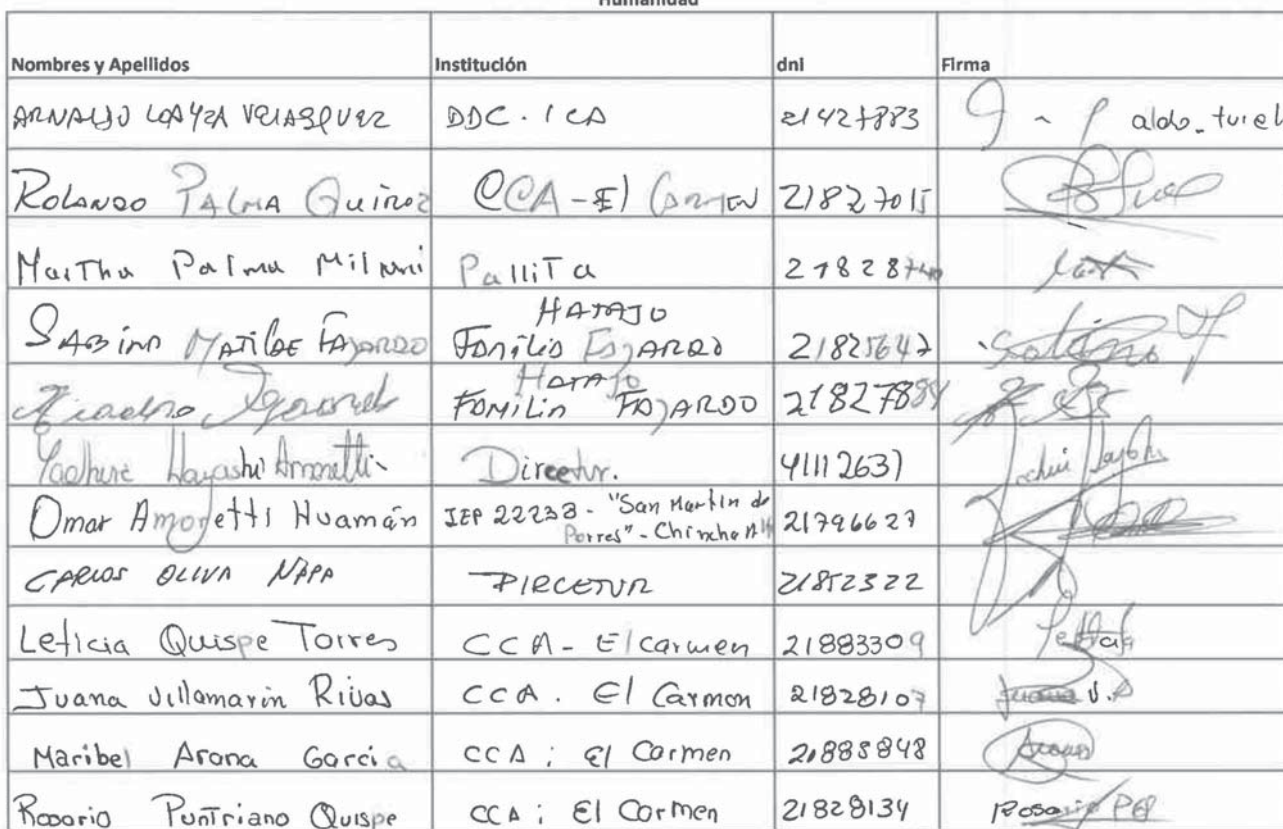 Humanidad
Nombres y Apellidos Institución dni Firma
ARNALDO LOAYZA VELASQUEZ DDC. ICA 21427883 aldo_turel
ROLANDO PALMA Quiroz CCA - El Carmen 21827015
Martha Palma Milani Pallita 21828740
HATAJO
SABINO MATILDE FAJARDO Familia FAJARDO 21825647
Hatajo
Familia FAJARDO 21827884
Hayashi Amoretti Dircetur. 41112631
Omar Amoretti Huamán IEP 22238 - "San Martin de
Porres" - Chincha Alta 21796627
CARLOS OLIVA NAPA DIRCETUR 21852322
Leticia Quispe Torres CCA - El Carmen 21883309
Juana Villamarin Rivas CCA. El Carmen 21828107 Juana V.
Maribel Arana Garcia CCA; El Carmen 21885848 Arana
Rosario Puntriano Quispe CCA; El Carmen 21828134 Rosario PQ